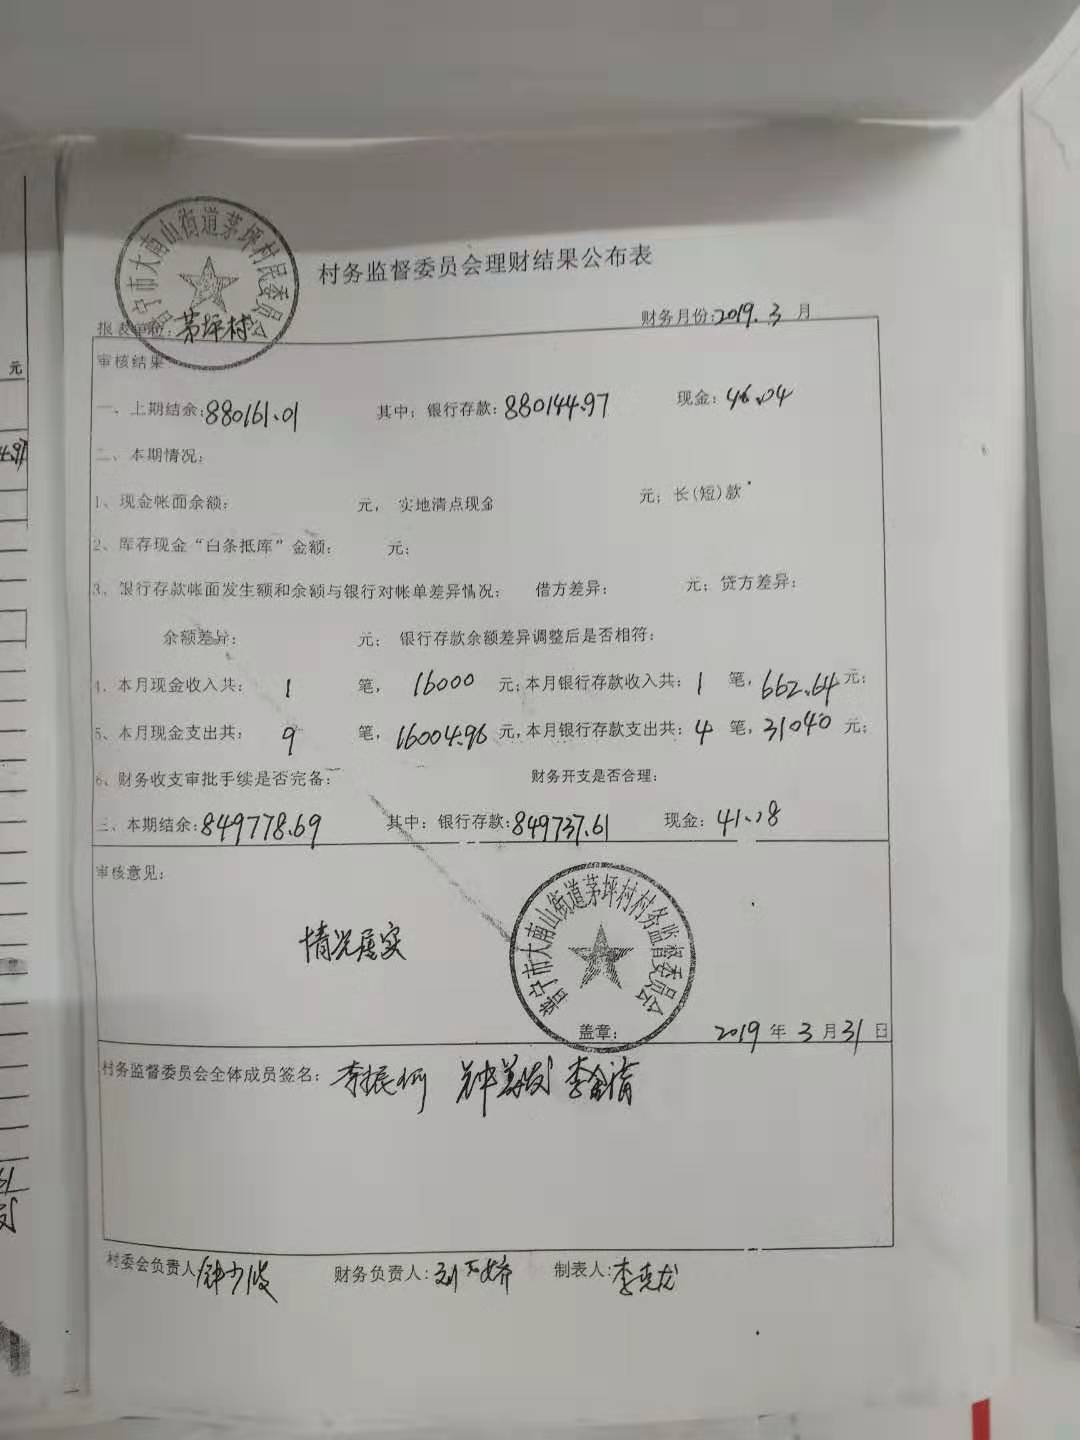 村务监督委员会理财结果公布表
普宁市大南山街道茅坪村民委员会
报表单位:茅坪村 财务月份:2019.3月
审核结果:
一、上期结余:880161.01 其中:银行存款:880144.97 现金:46.04
二、本期情况:
1、现金帐面余额: 元, 实地清点现金 元; 长(短)款
2、库存现金“白条抵库”金额: 元;
3、银行存款帐面发生额和余额与银行对帐单差异情况: 借方差异: 元; 贷方差异:
余额差异: 元; 银行存款余额差异调整后是否相符:
4、本月现金收入共: 1 笔, 16000 元; 本月银行存款收入共: 1 笔, 662.64 元;
5、本月现金支出共: 9 笔, 16004.96 元, 本月银行存款支出共: 4 笔, 31040 元;
6、财务收支审批手续是否完备: 财务开支是否合理:
三、本期结余:849778.69 其中: 银行存款:849737.61 现金:41.08
审核意见:
情况属实
普宁市大南山街道茅坪村村务监督委员会
盖章: 2019年3月31日
村务监督委员会全体成员签名: 李振
村委会负责人 钟少波 财务负责人: 制表人:李克龙
元